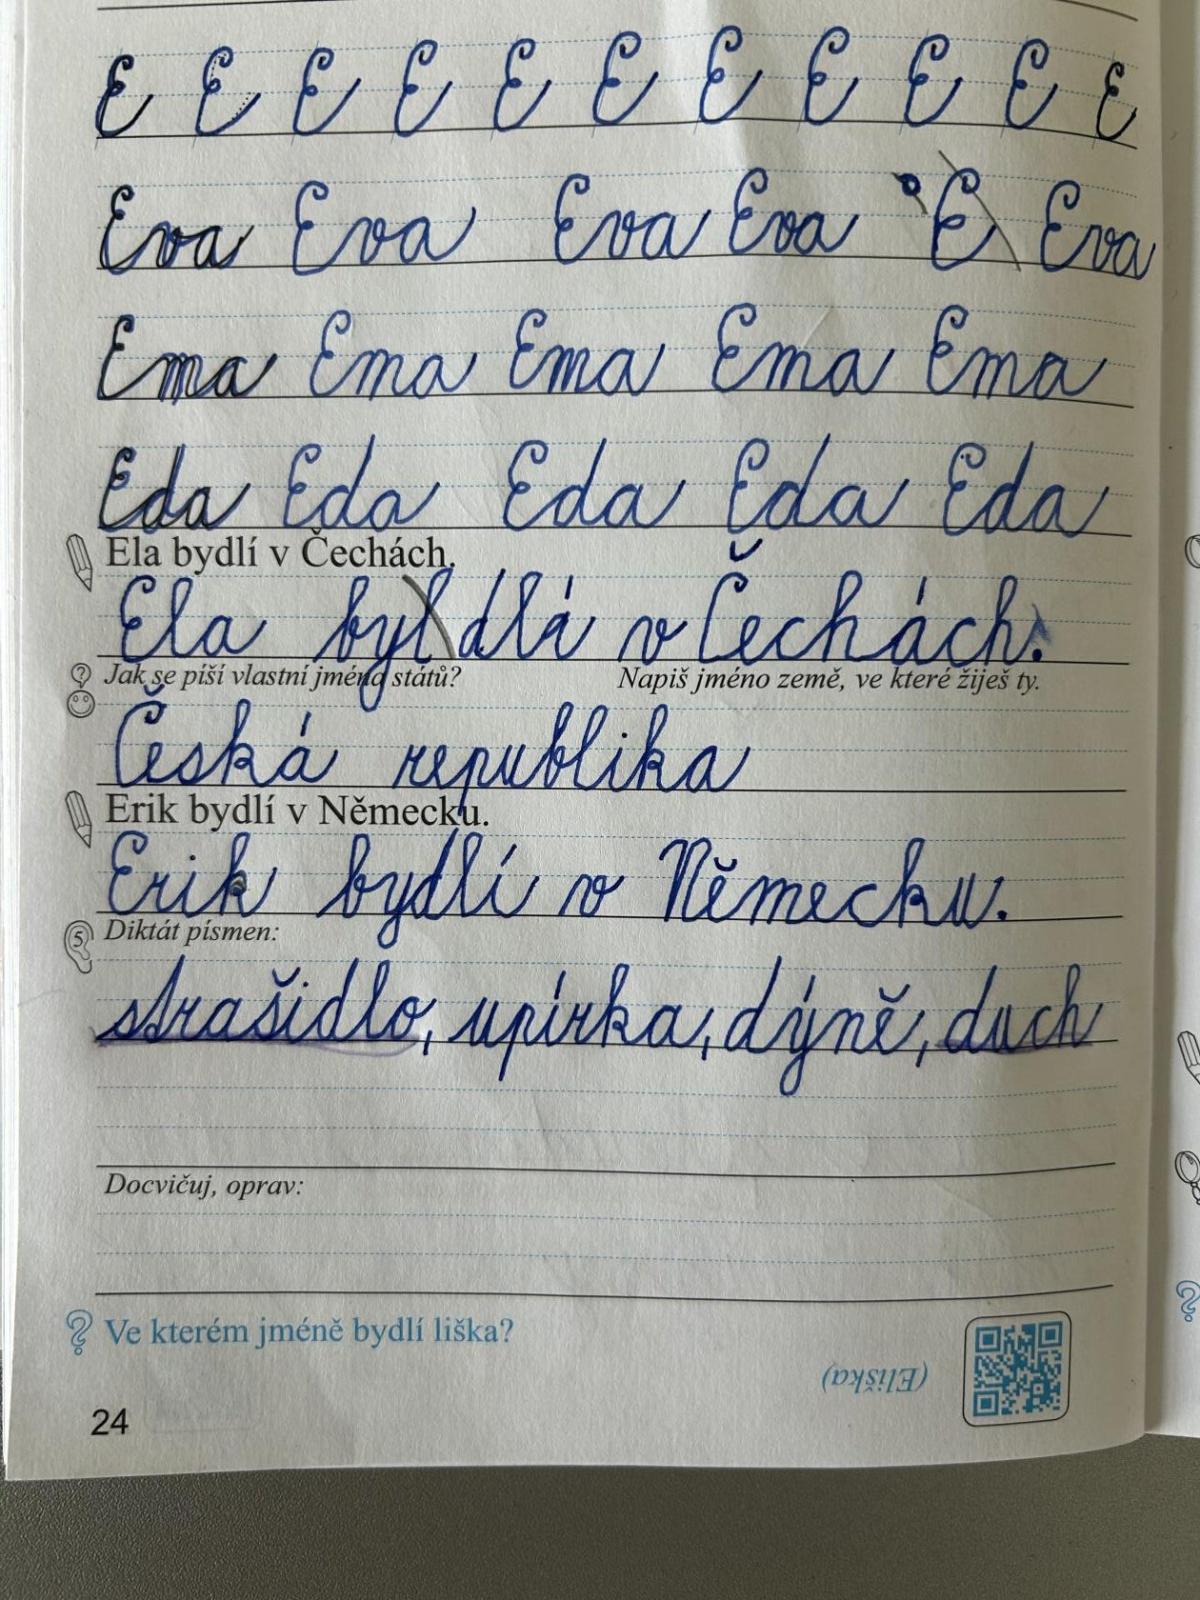 E E E E E E E E E E E
Eva Eva Eva Eva E Eva
Ema Ema Ema Ema Ema
Eda Eda Eda Eda Eda
Ela bydlí v Čechách.
Ela byldlí v Čechách.
Jak se píší vlastní jména států? Napiš jméno země, ve které žiješ ty.
Česká republika
Erik bydlí v Německu.
Erik bydlí v Německu.
5 Diktát písmen:
strašidlo, upírka, dýně, duch
Docvičuj, oprav:
Ve kterém jméně bydlí liška?
(Eliška)
24